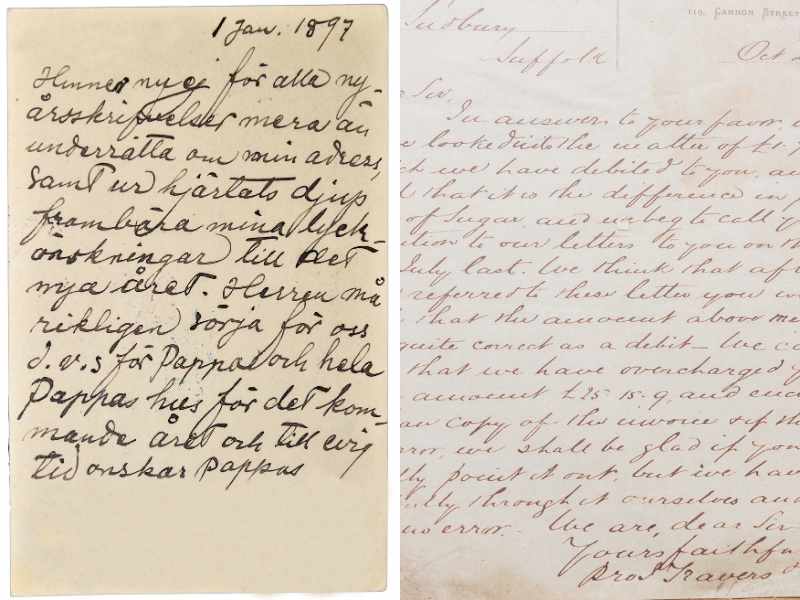 1 Jan. 1897
Hinner nu ej för alla ny-
årsskrifvelser mera än
underrätta om min adress,
samt ur hjärtats djup
frambära mina lyck-
önskningar till det
nya året. Herren må
rikligen sörja för oss
d.v.s för Pappas och hela
Pappas hus för det kom-
mande året och till evig
tid önskar Pappas
Sudbury
Suffolk
110, CANNON STREET
Oct
Sir,
In answer to your favor
looked into the matter of £1.
we have debited to you, an
that it is the difference in
of Sugar, and we beg to call y
tion to our letters to you on th
July last. We think that aft
referred to these letter you w
that the amount above me
quite correct as a debit - We ca
that we have overcharged y
amount £25.15.9, and enc
copy of the invoice & if the
ror, we shall be glad if you
ly point it out, but we hav
ully through it ourselves and
no error. We are, dear Sir
Yours faithfu
Travers